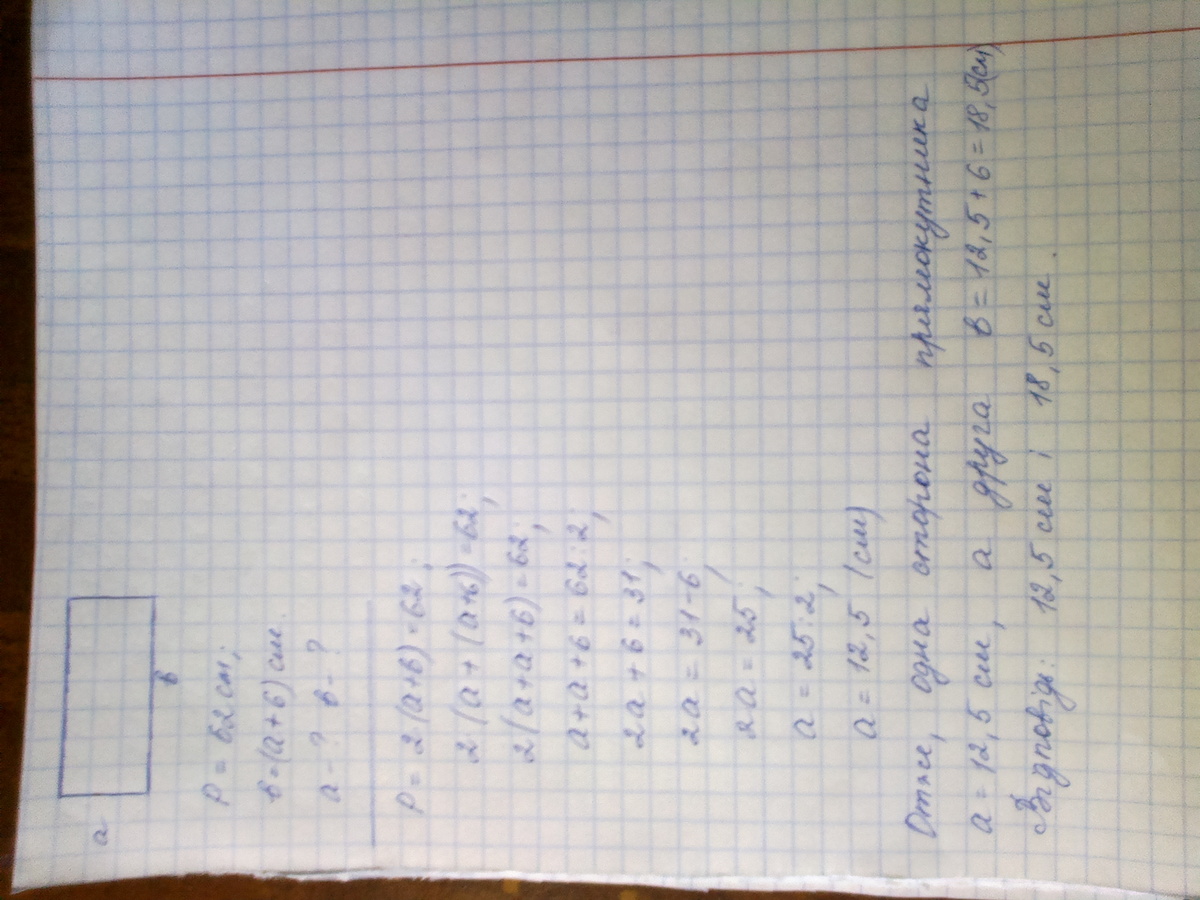 a
в
P = 62 см;
в=(a+6) см.
a - ? в - ?
P = 2(a+в)=62;
2·(a+(a+6))=62;
2(a+a+6)=62;
a+a+6=62:2;
2a+6=31;
2a=31-6;
2a=25;
a=25:2;
a=12,5 (см)
Отже, одна сторона прямокутника
a=12,5 см, а друга в=12,5+6=18,5(см)
Відповідь: 12,5 см і 18,5 см.